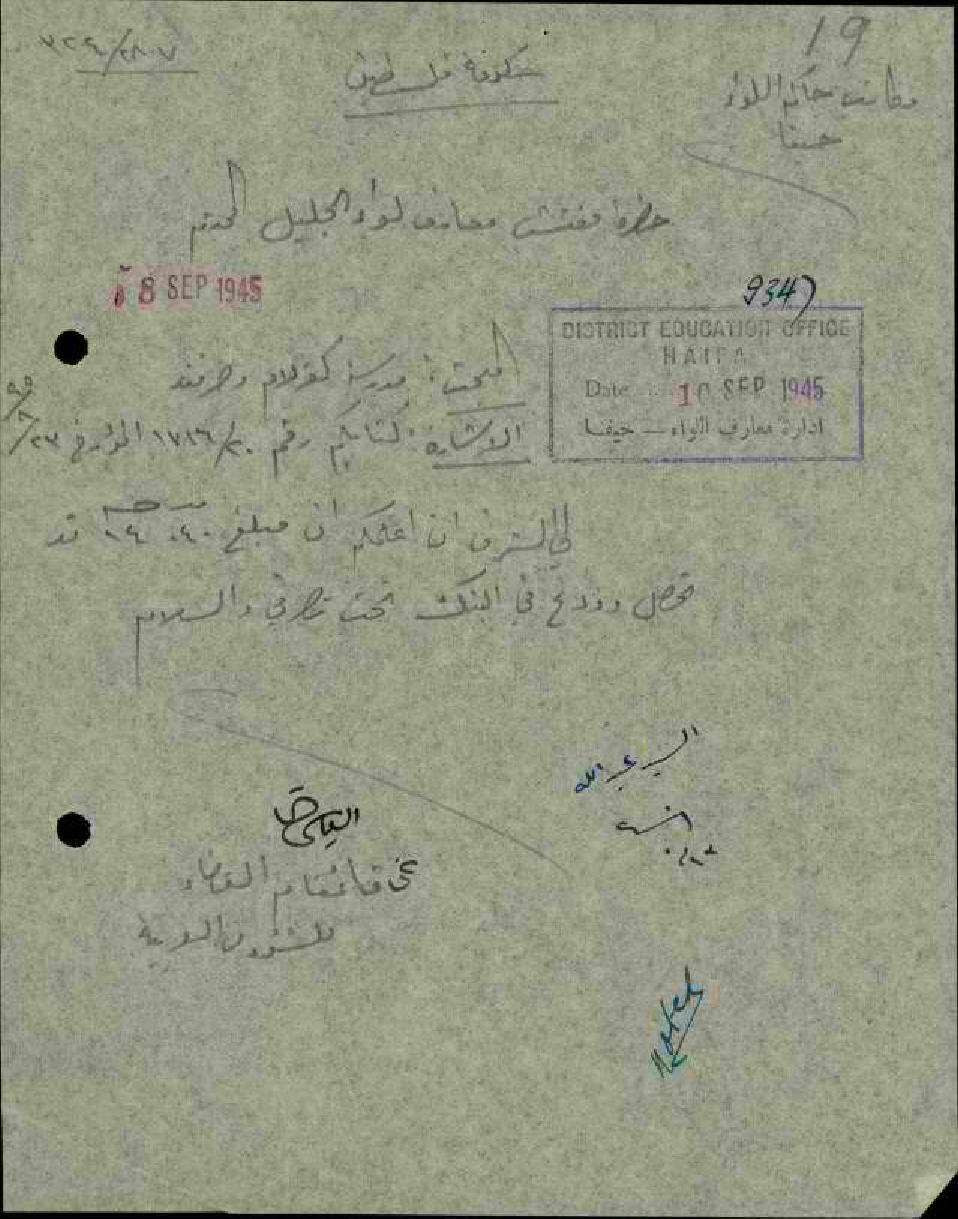 19
٣٢٤/٢٨٠٧
حكومة فلسطين
مكاتب حاكم اللواء
حيفا
حضرة مفتش معارف لواء الجليل المحترم
8 SEP 1945
9347
DISTRICT EDUCATION OFFICE
HAIFA
Date 10 SEP 1945
ادارة معارف اللواء — حيفا
المبحث: مدرسة كفرلام وصرفند
الاشارة: كتابكم رقم ١٧١٦/٢٠ المؤرخ ٢٧/٨/٤٥
لي الشرف ان اعلمكم ان مبلغ قد
تحصل وودع في البنك تحت تصرفي والسلام
السيد عبد الله
عن قائمقام القضاء
للشؤون العربية
Noted